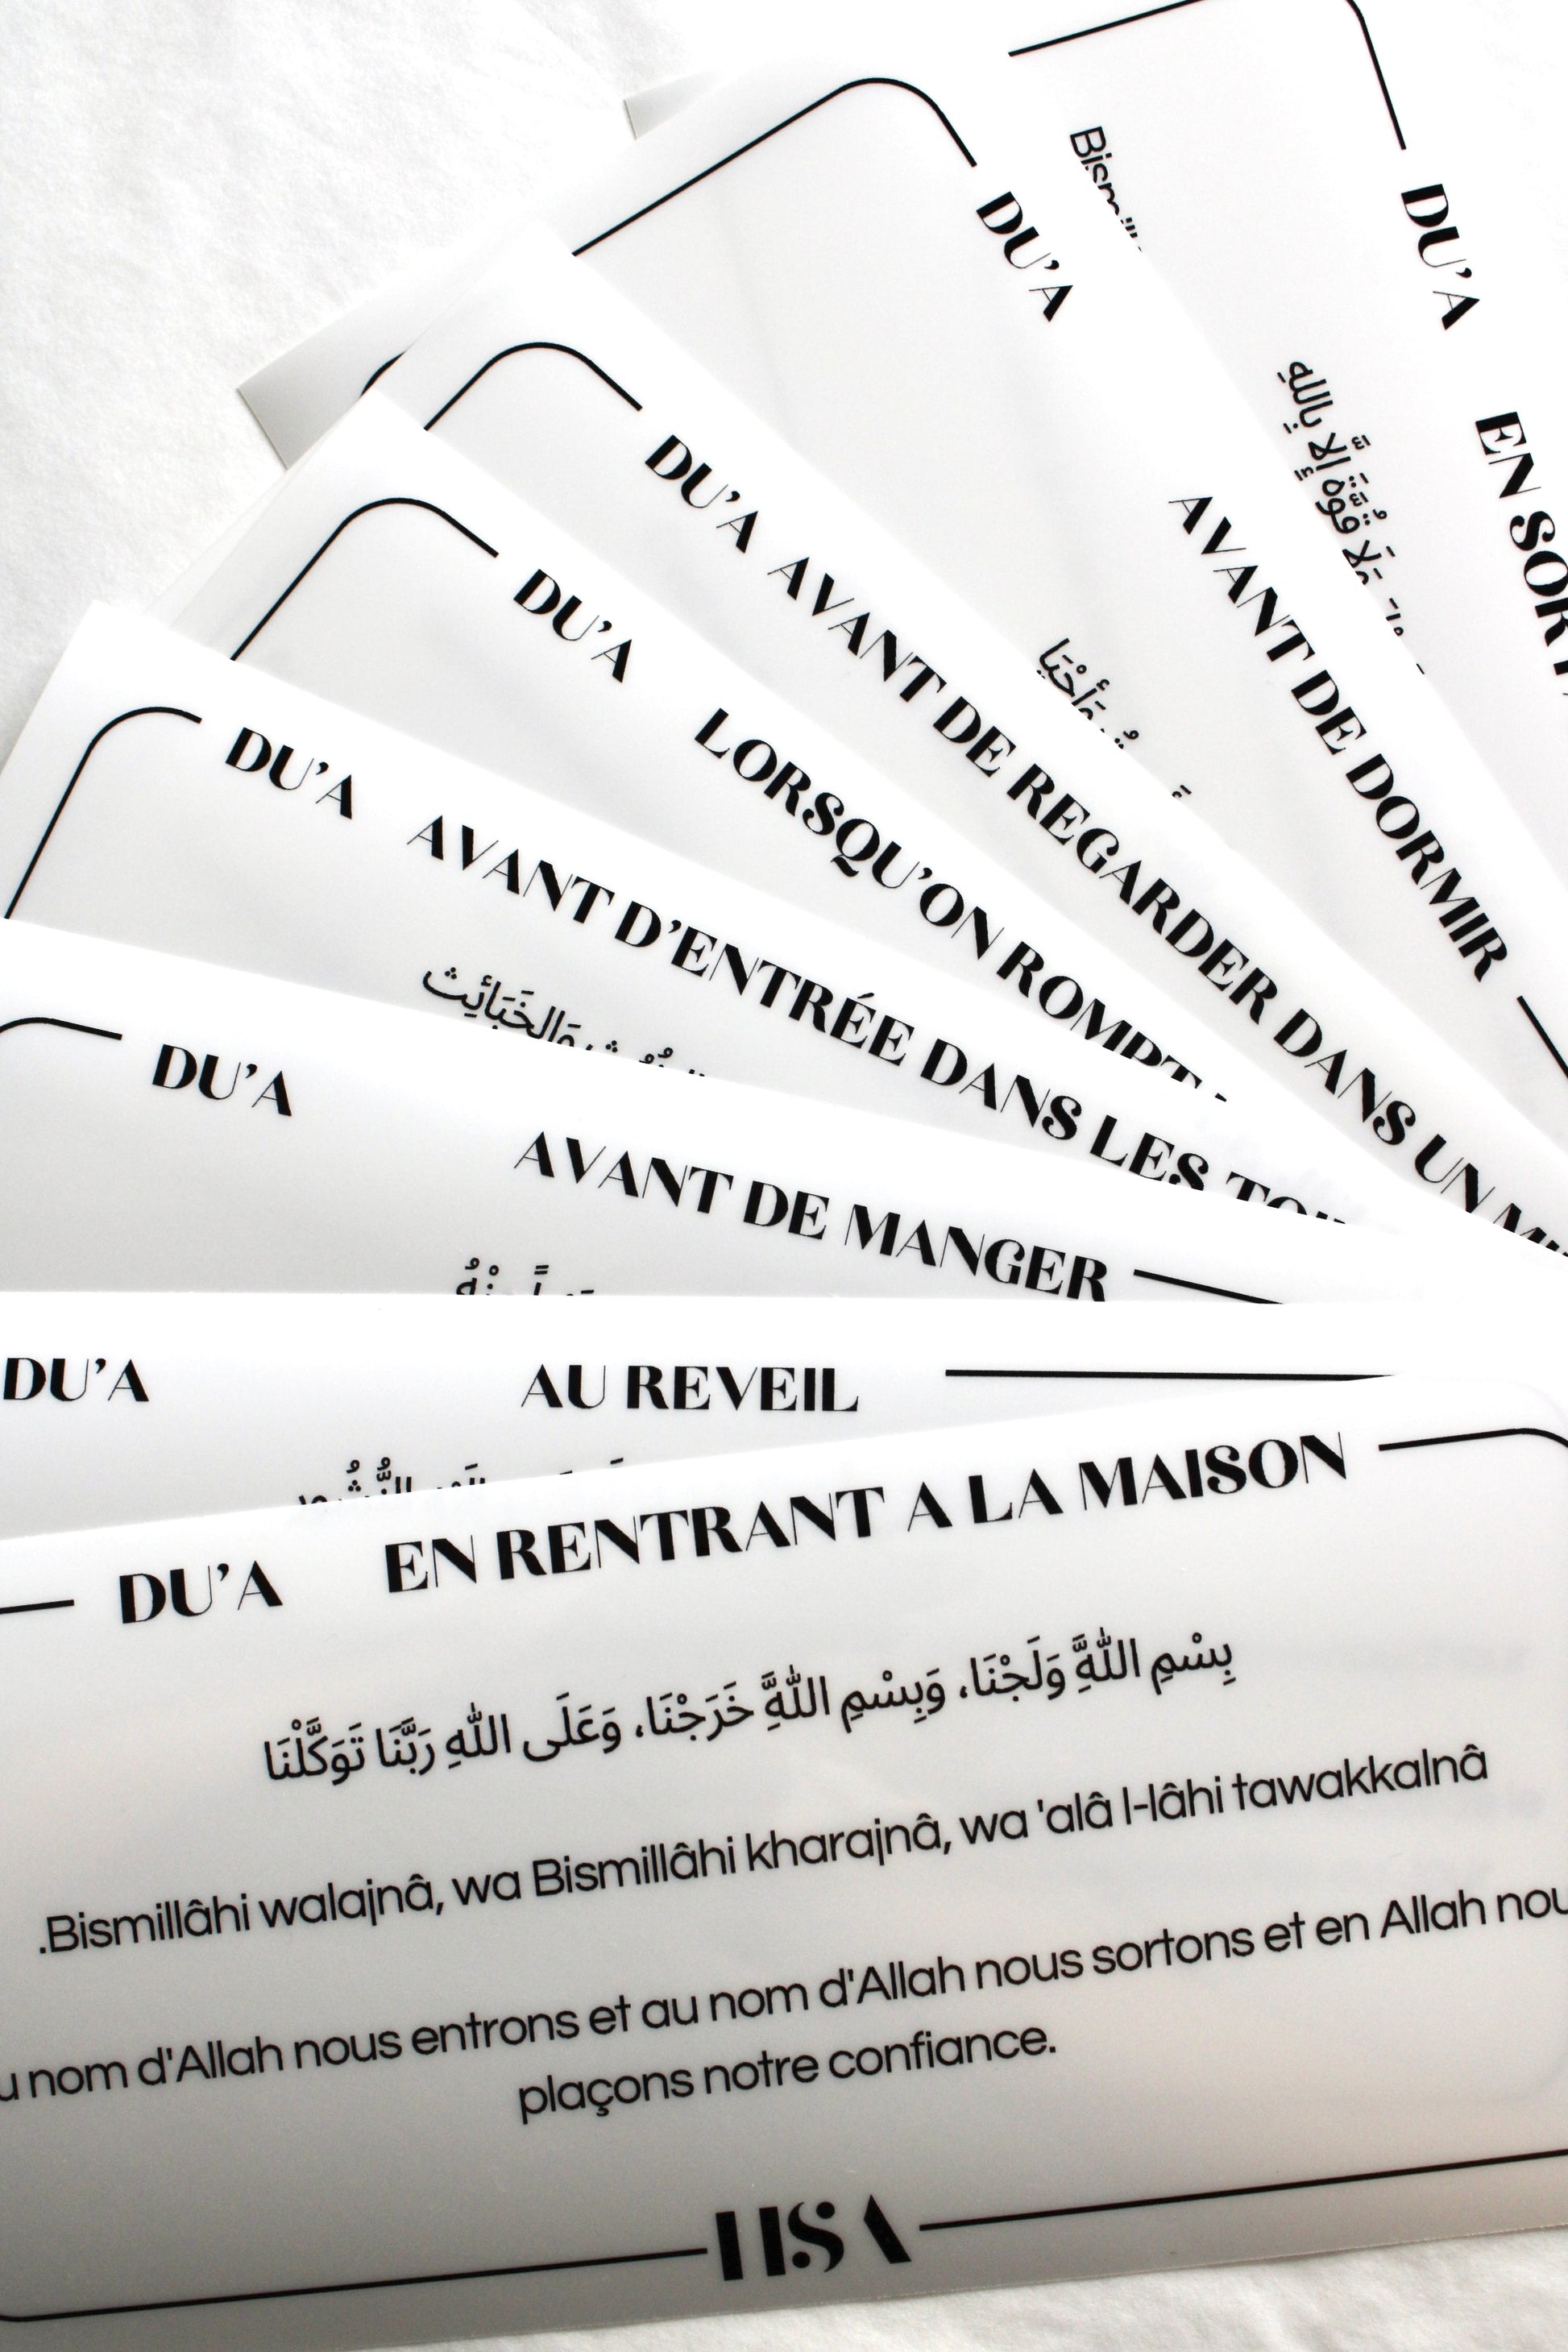 DU'A
EN
بِاللهِ
وَلَا قُوَّةَ إِلَّا
DU'A
AVANT DE DORMIR
DU'A AVANT DE REGARDER DANS UN
DU'A LORSQU'ON ROMPT
DU'A AVANT D'ENTRÉE DANS LES
وَالخَبَائِث
DU'A AVANT DE MANGER
DU'A AU REVEIL
DU'A EN RENTRANT A LA MAISON
بِسْمِ اللَّهِ وَلَجْنَا، وَبِسْمِ اللَّهِ خَرَجْنَا، وَعَلَى اللهِ رَبَّنَا تَوَكَّلْنَا
.Bismillâhi walajnâ, wa Bismillâhi kharajnâ, wa 'alâ l-lâhi tawakkalnâ
nom d'Allah nous entrons et au nom d'Allah nous sortons et en Allah
plaçons notre confiance.